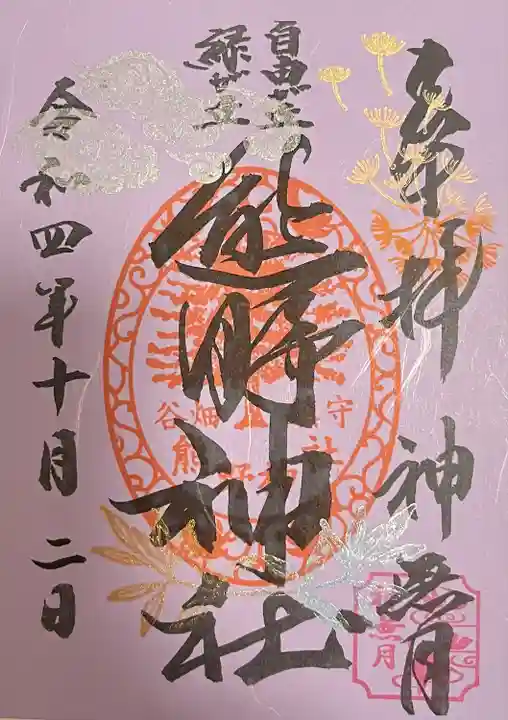 奉拝 神無月
自由が丘
緑が丘
熊野神社
令和四年十月二日
谷畑 守
熊野神社
無月